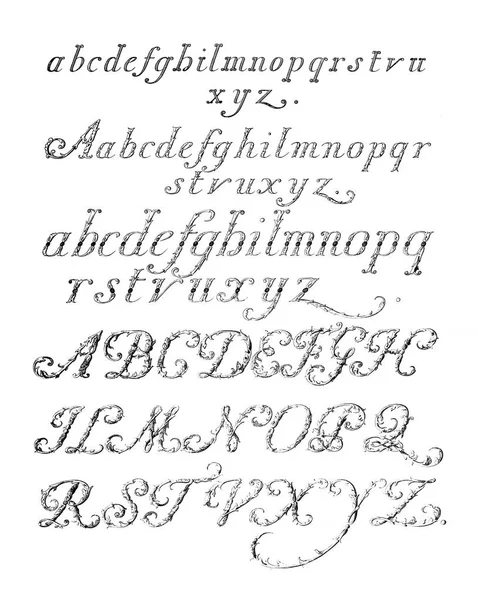 abcdefghilmnopqrstvu
xyz.
Aabcdefghilmnopqr
stvuxyz.
abcdefghilmnopq
rstvuxyz.
ABCDEFGH
ILMNOPQ
RSTVXYZ.